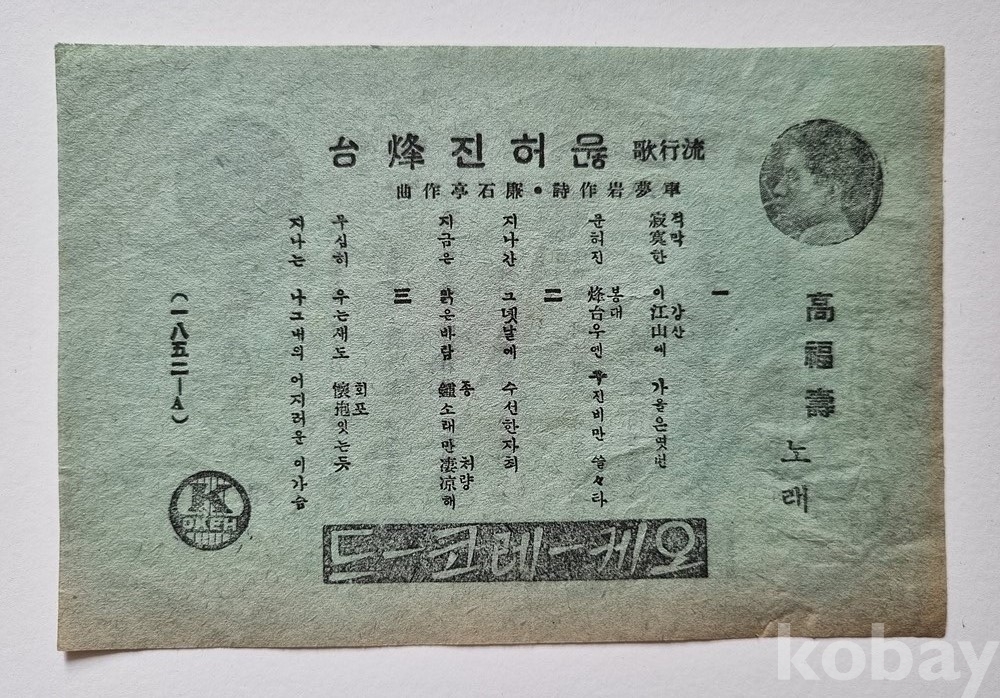 流行歌 문허진烽台
車夢岩作詩・廉石亭作曲
高福壽 노래
一
적막 강산
寂寞한 이江山에 가을은몃번
봉대
문허진 烽台우엔 구진비만 쓸々타
二
지나간 그녯날에 수선한자최
종 처량
지금은 맑은바람 鐘소래만凄凉해
三
회포
무심히 우는재도 懷抱잇는듯
지나는 나그내의 어지러운 이가슴
(一八五二—A)
K
OKEH
오케ー레코ード
kobay